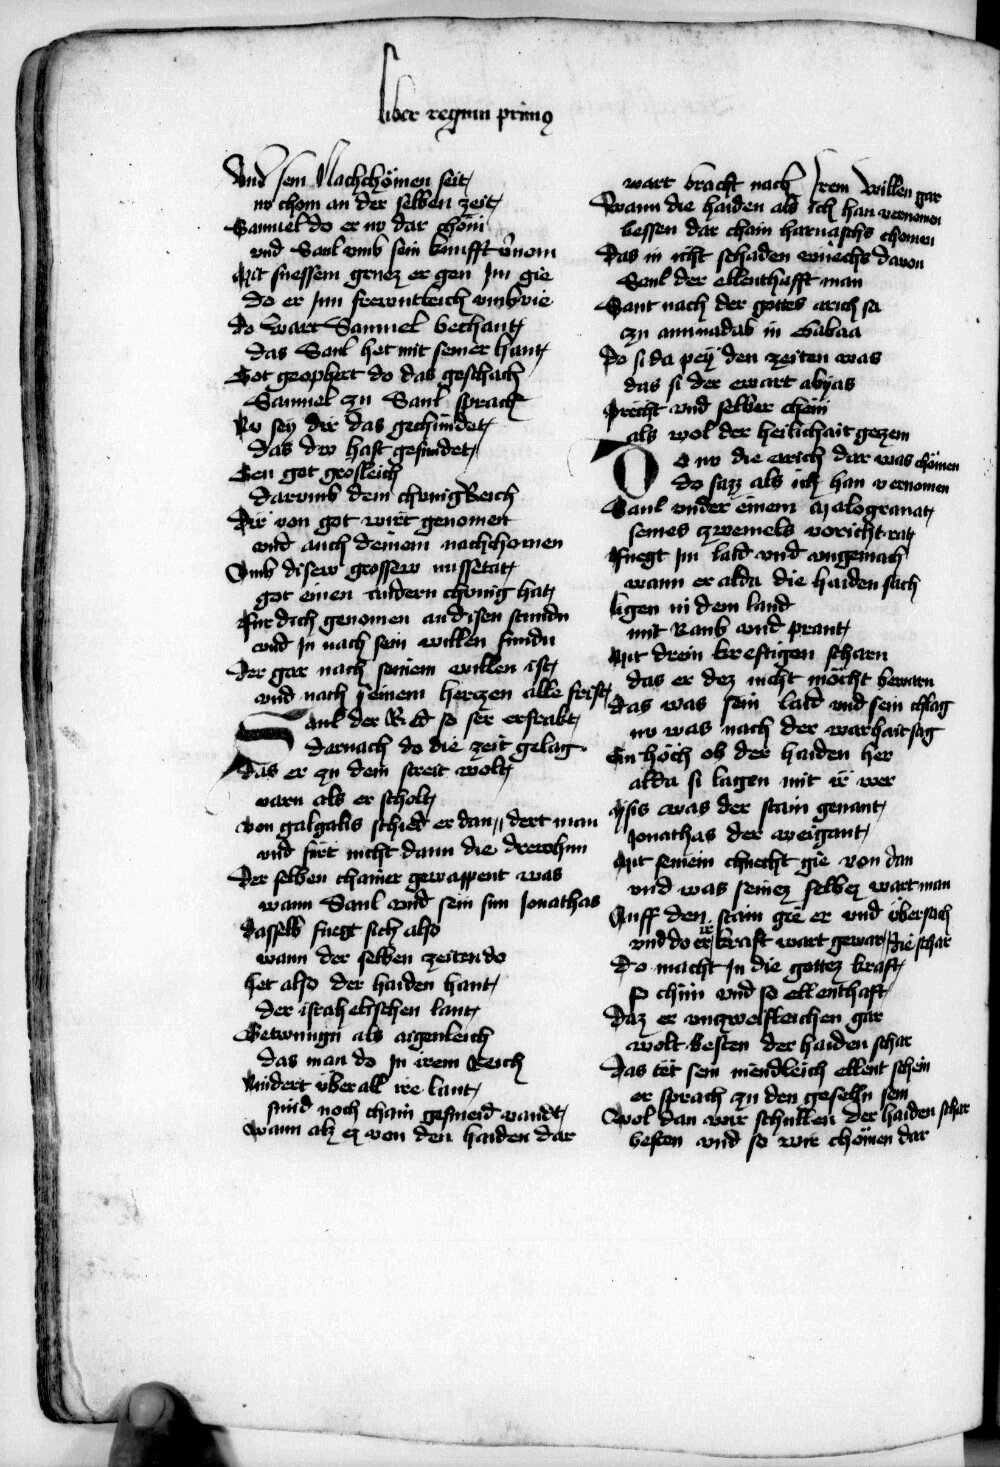 liber regum primus
Vnd sein Nachchömen seit
nv chom an der selben zeit
Samuel do er nv dar chöm
vnd Saul vmb sein kunfft v̈nom
Mit suessem grüez er gen Im gie
do er Inn frewntleich vmbvie
do wart Samuel bechant
das Saul het mit seiner hant
Got geophert do das geschach
Samuel czu Saul sprach
Nv sey dir das gechündet
das dw hast gesündet
Gen got grösleich
darvmb dein chvnigReich
Dir von got wirt genomen
vnd auch deinem nachchomen
Vmb disew grossew missetat
got einen andern chvnig hat
Für dich genomen an disen stundn
vnd In nach sein willen fundn
Der gar nach seinem willen ist
vnd nach seinem hertzen alle frist
Saul der Red so ser erschrakt
darnach do die zeit gelag
das er zu dem streit wolt
varn als er scholt
von galgalis schied er dan dert man
vnd fürt nicht dann die drewhun
Der selben chainer gewappent was
wann Saul vnd sein sun Jonathas
dasselb fuegt sich also
wann der selben zeiten do
het also der haiden hant
der israhelischen lant
Getwungn als aigenleich
das man do In irem Reich
Nindert über all ire lant
smid noch chain gesmeid vandt
Wann alz ez von den haiden dar
wart bracht nach Irem willen gar
Wann die haiden als Ich han vernomen
liessen dar chain harnaschs chomen
Das in icht schaden wüechs davon
Saul der ellenthafft man
Sant nach der gottes arich sa
czu aminadab in Gabaa
do si da pey den zeiten was
das si der ewart abyas
Precht vnd selber chöm
als wol der heilichait geczem
Do nv die arich dar was chömen
do sazz als ich han vernomen
Saul vnder einem Malogranat
seines zweinels voricht rat
Fuegt Im laid vnd vngemach
wann er alda die haiden sach
ligen in dem land
mit Raub vnd prant
Mit drein kreftigen scharn
das er dez nicht möcht bewarn
das was sein laid vnd sein chlag
nv was nach der warhait sag
Ein höch ob der haiden her
alda si lagen mit ir wer
Ysis was der stain genant
Jonathas der weigant
Mit seinem chnecht gie von dan
vnd was seinez selbez wart man
Auff den stain gie er vnd übersach
vnd do er ir kraft wart gewar die schar
Do macht In die gottez kraft
so chün vnd so ellenthaft
Daz er vnczweifleichen gar
wolt besten der haiden schar
Das tët sein mendleich ellent schein
er sprach zu den geselln sein
Wol dan wir schullen der haiden schar
besten vnd so wir chömen dar